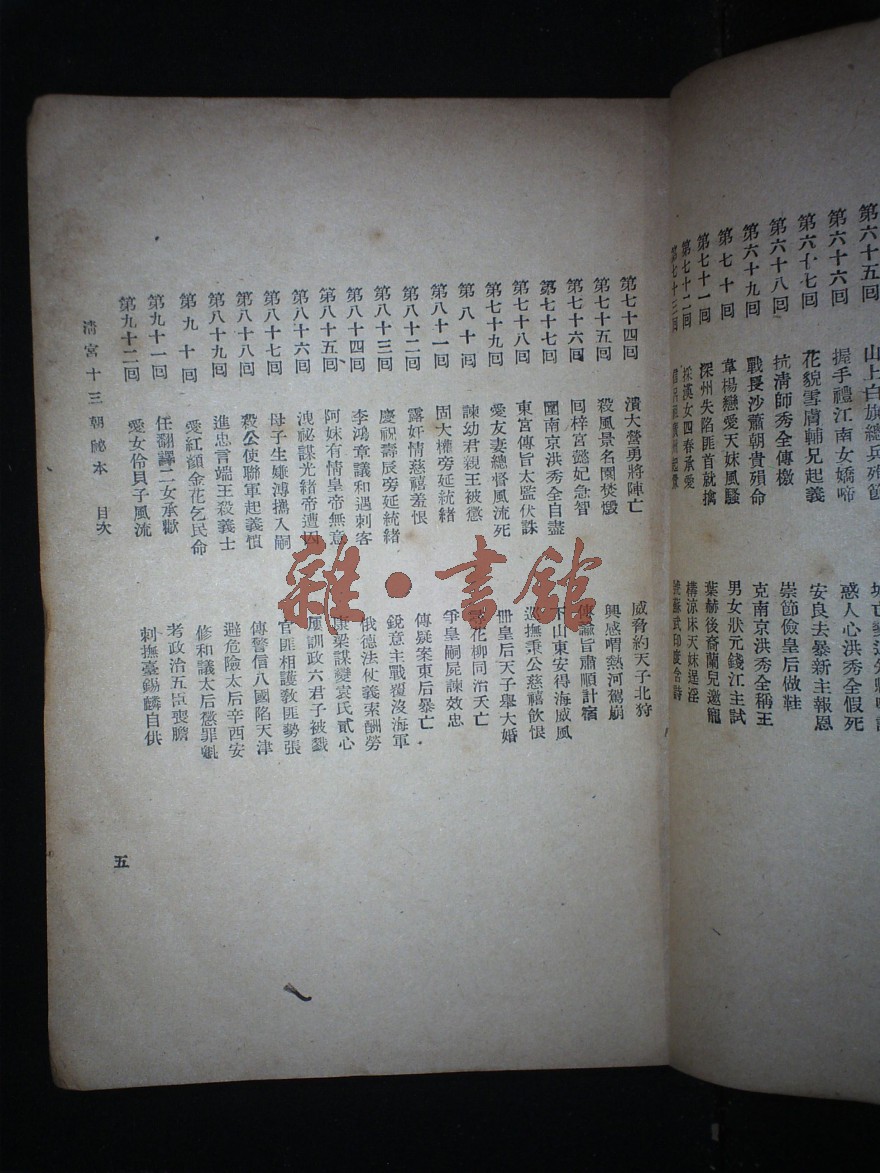 第六十五回 山上白旗總兵殉節
第六十六回 握手禮江南女嬌啼 惑人心洪秀全假死
第六十七回 花貌雪膚輔兄起義 安良去暴新主報恩
第六十八回 抗清師秀全傳檄 崇節儉皇后做鞋
第六十九回 戰長沙蕭朝貴殞命 克南京洪秀全稱王
第七十回 韋楊戀愛天妹風騷 男女狀元錢江主試
第七十一回 深州失陷匪首就擒 葉赫後裔蘭兒邀寵
第七十二回 採漢女四春承愛 構涼床天妹逞淫
第七十三回
第七十四回 潰大營勇將陣亡 威脅約天子北狩
第七十五回 殺風景名園焚燬 興感喟熱河駕崩
第七十六回 回梓宮懿妃急智 傳諭旨肅順計宿
第七十七回 圍南京洪秀全自盡 下山東安得海威風
第七十八回 東宮傳旨太監伏誅 巡撫秉公慈禧飲恨
第七十九回 愛友妻總督風流死 冊皇后天子舉大婚
第八十回 諫幼君親王被懲 花柳同治夭亡
第八十一回 固大權旁延統緒 爭皇嗣屍諫效忠
第八十二回 露奸情慈禧羞恨 傳疑案東后暴亡
第八十三回 慶祝壽辰旁延統緒 銳意主戰覆沒海軍
第八十四回 李鴻章議和遇刺客 俄德法仗義索酬勞
第八十五回 阿妹有情皇帝無意 康梁謀變袁氏貳心
第八十六回 洩祕謀光緒帝遭囚 訓政六君子被戮
第八十七回 母子生嫌溥㑺入嗣 官匪相護教匪勢張
第八十八回 殺公使聯軍起義憤 傳警信八國陷天津
第八十九回 進忠言端王殺義士 避危險太后幸西安
第九十回 愛紅顏金花乞民命 修和議太后懲罪魁
第九十一回 任翻譯二女承歡 考政治五臣喪膽
第九十二回 愛女伶貝子風流 刺撫臺錫麟自供
清宮十三朝祕本 目次
五
雜·書館